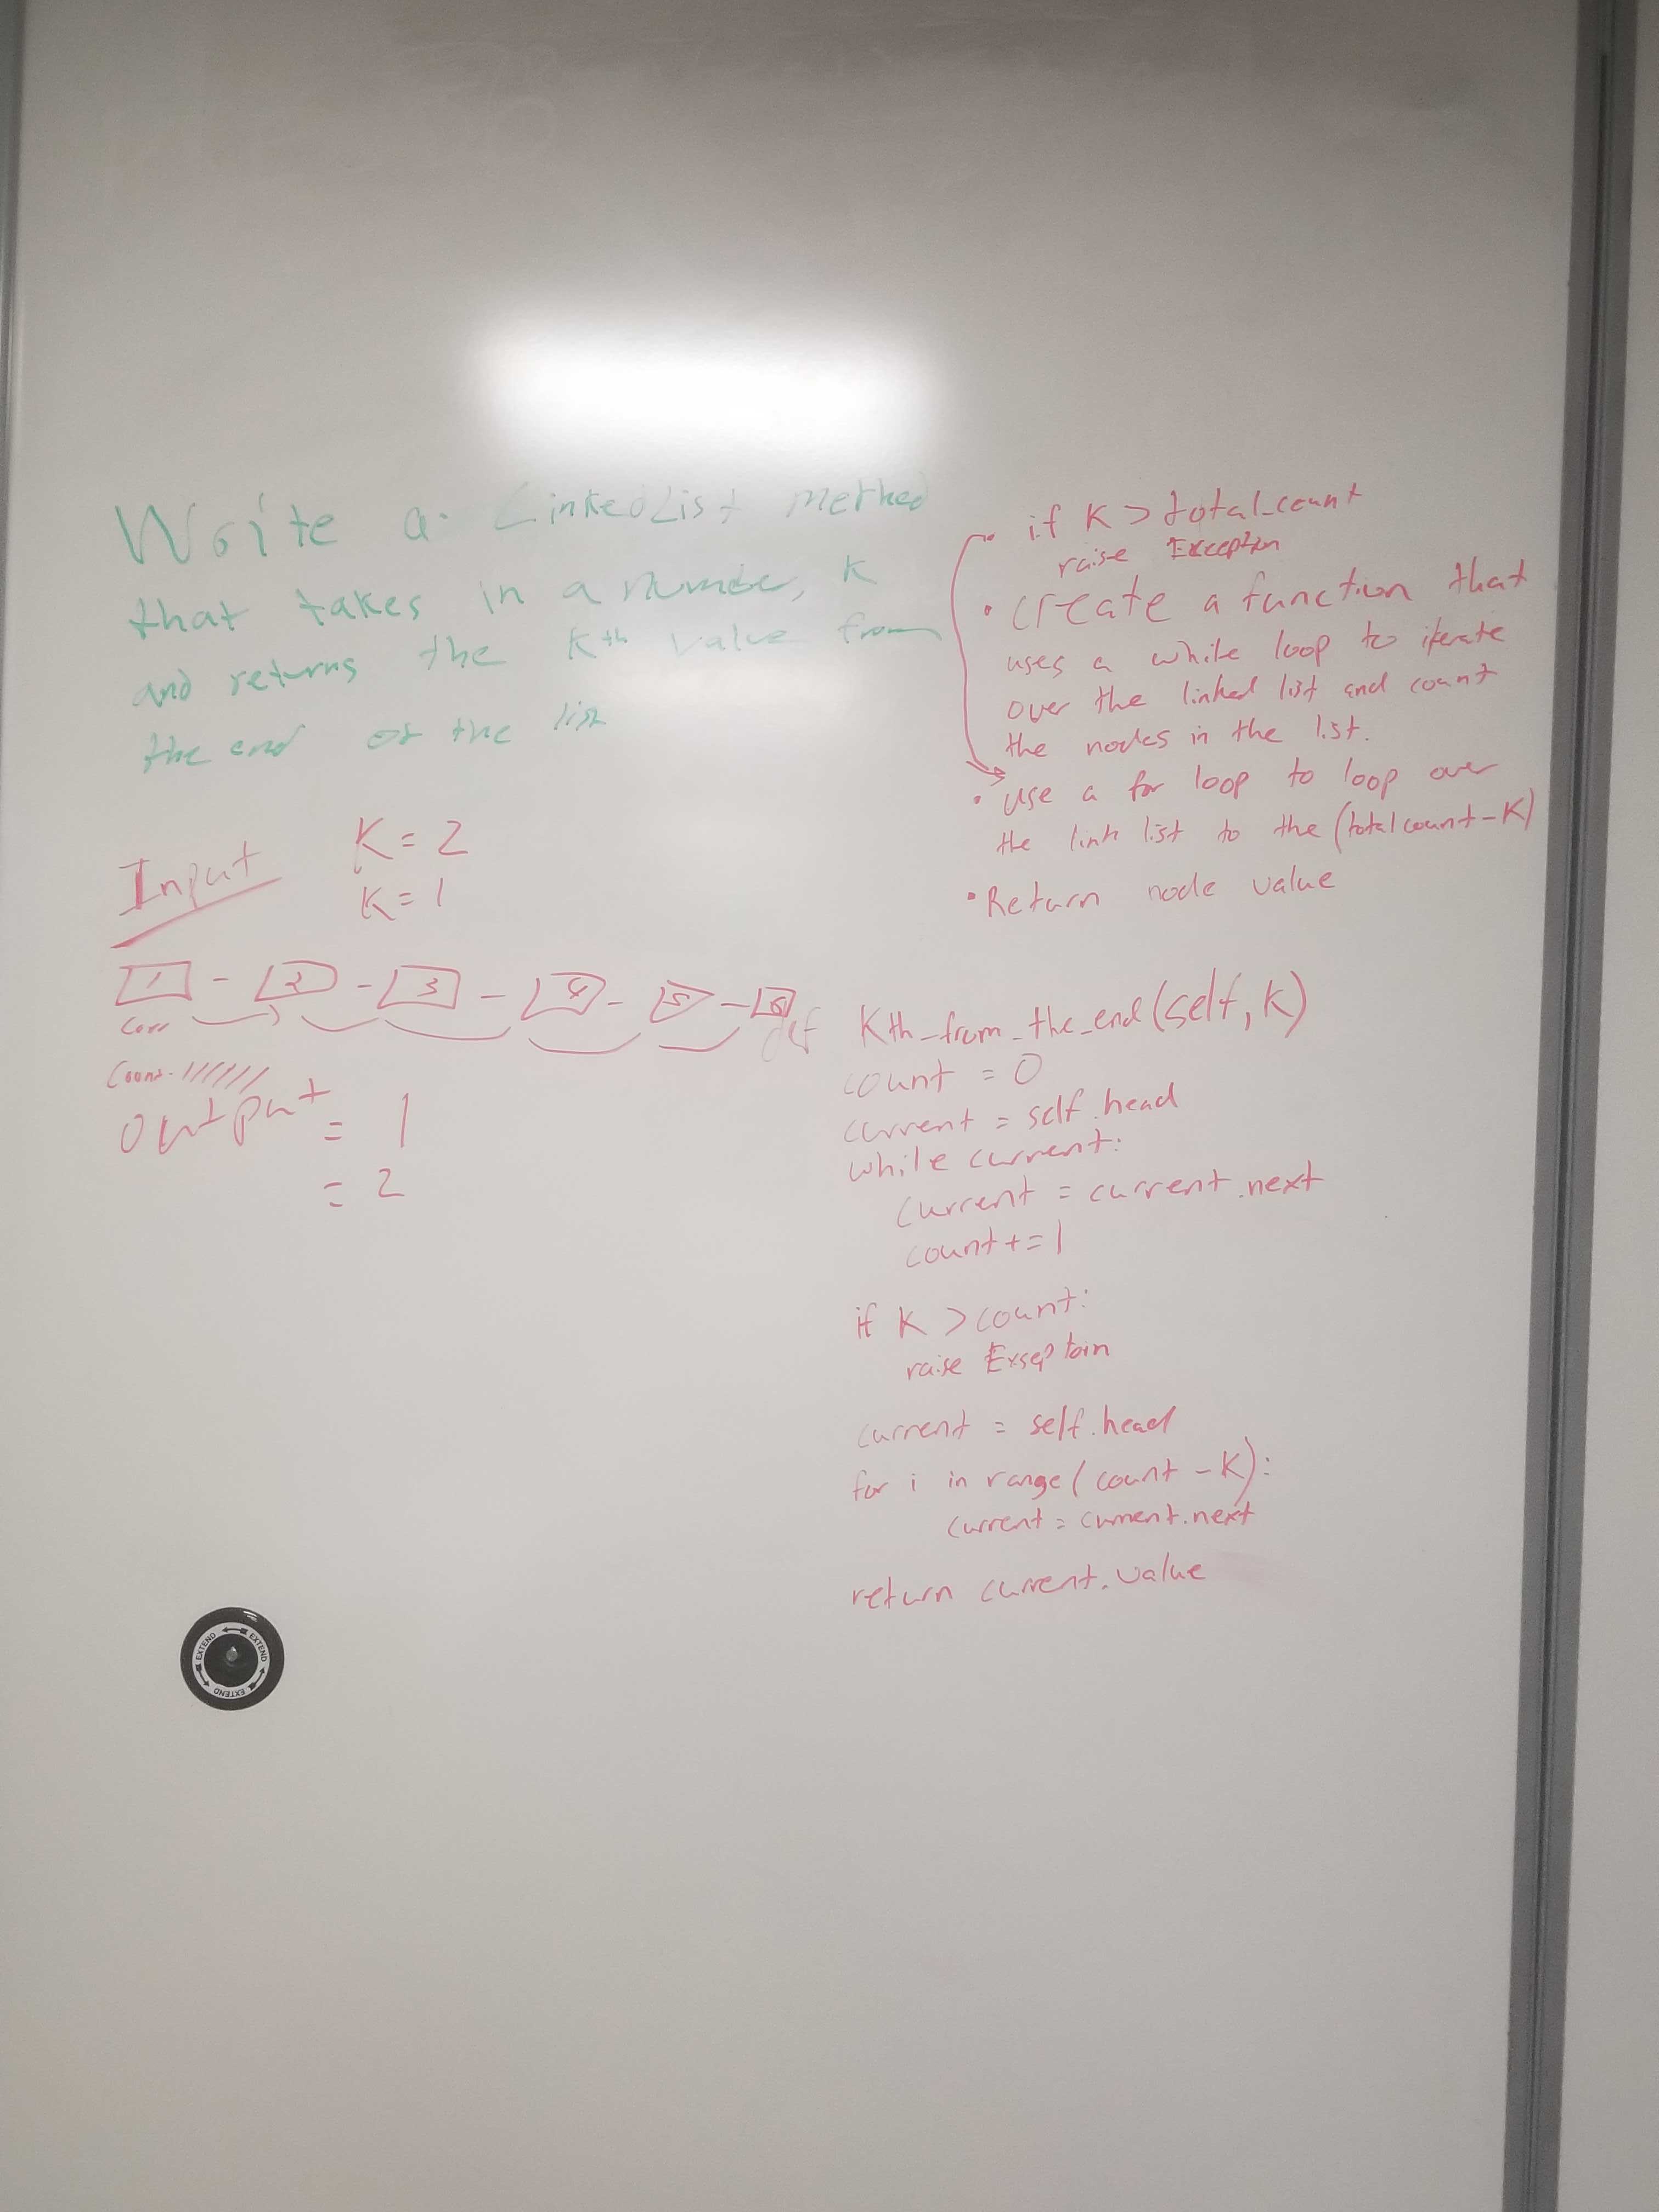 Write a LinkedList Method
that takes in a number, K
and returns the Kth value from
the end of the list
Input
K = 2
K = 1
1 - 2 - 3 - 4 - 5 - 6
Curr
Count - //////
output = 1
= 2
• if K > total_count
raise Exception
• create a function that
uses a while loop to iterate
over the linked list and count
the nodes in the list.
• use a for loop to loop over
the link list to the (total count - K)
• Return node value
def Kth_from_the_end(self, K)
count = 0
current = self.head
while current:
current = current.next
count += 1
if K > count:
raise Exseptoin
current = self.head
for i in range(count - K):
current = current.next
return current.value
EXTEND EXTEND EXTEND